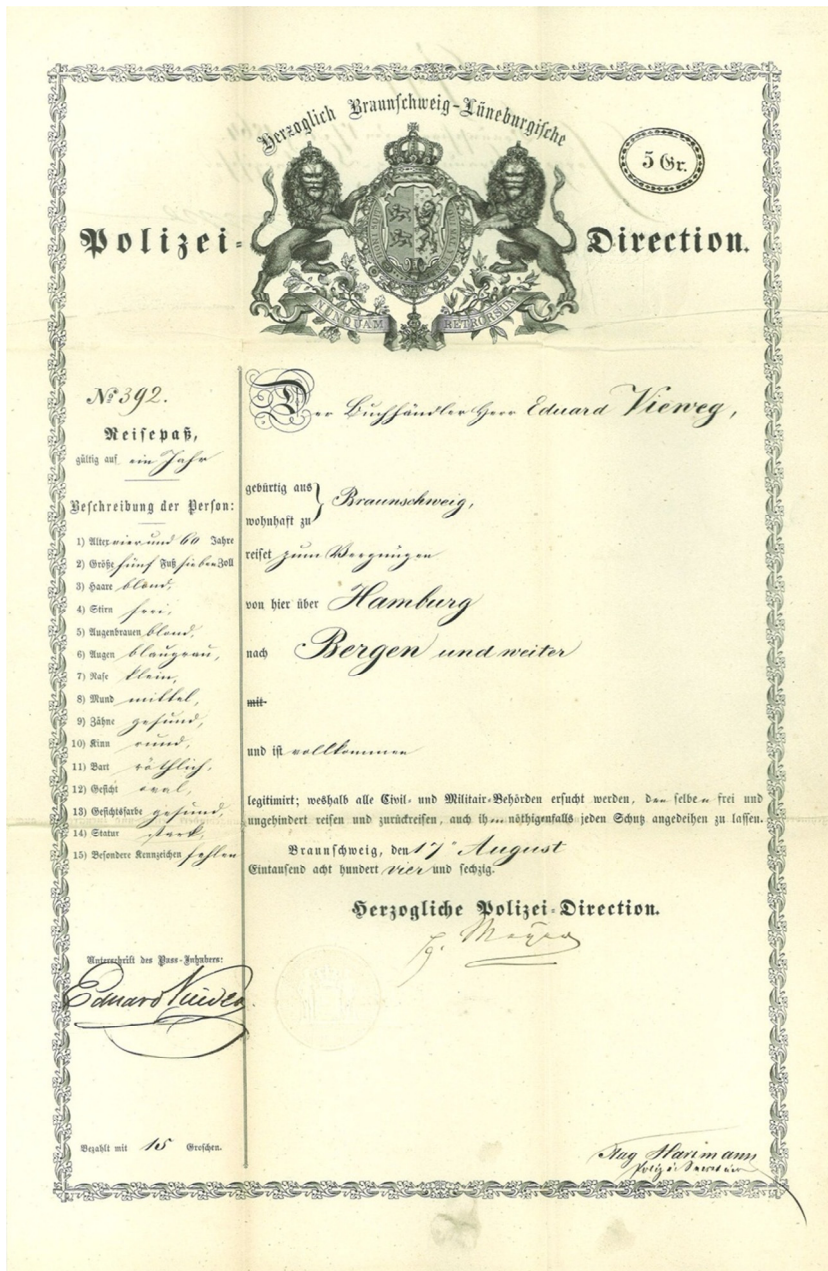 Herzoglich Braunschweig-Lüneburgische
5 Gr.
Polizei-Direction.
NUNQUAM RETRORSUM
No 392.
Reisepaß,
gültig auf ein Jahr
Beschreibung der Person:
1) Alter vier und 60 Jahre
2) Größe fünf Fuß sieben Zoll
3) Haare blond,
4) Stirn frei,
5) Augenbrauen blond,
6) Augen blaugrau,
7) Nase klein,
8) Mund mittel,
9) Zähne gesund,
10) Kinn rund,
11) Bart röthlich,
12) Gesicht oval,
13) Gesichtsfarbe gesund,
14) Statur stark,
15) Besondere Kennzeichen fehlen
Unterschrift des Pass-Inhabers:
Eduard Vieweg.
Bezahlt mit 15 Groschen.
Der Buchhändler Herr Eduard Vieweg,
gebürtig aus
wohnhaft zu
Braunschweig,
reiset zum Vergnügen
von hier über Hamburg
nach Bergen und weiter
mit
und ist vollkommen
legitimirt; weshalb alle Civil- und Militair-Behörden ersucht werden, denselben frei und
ungehindert reisen und zurückreisen, auch ihm nöthigenfalls jeden Schutz angedeihen zu lassen.
Braunschweig, den 17 August
Eintausend acht hundert vier und sechzig.
Herzogliche Polizei-Direction.
Aug Harimann